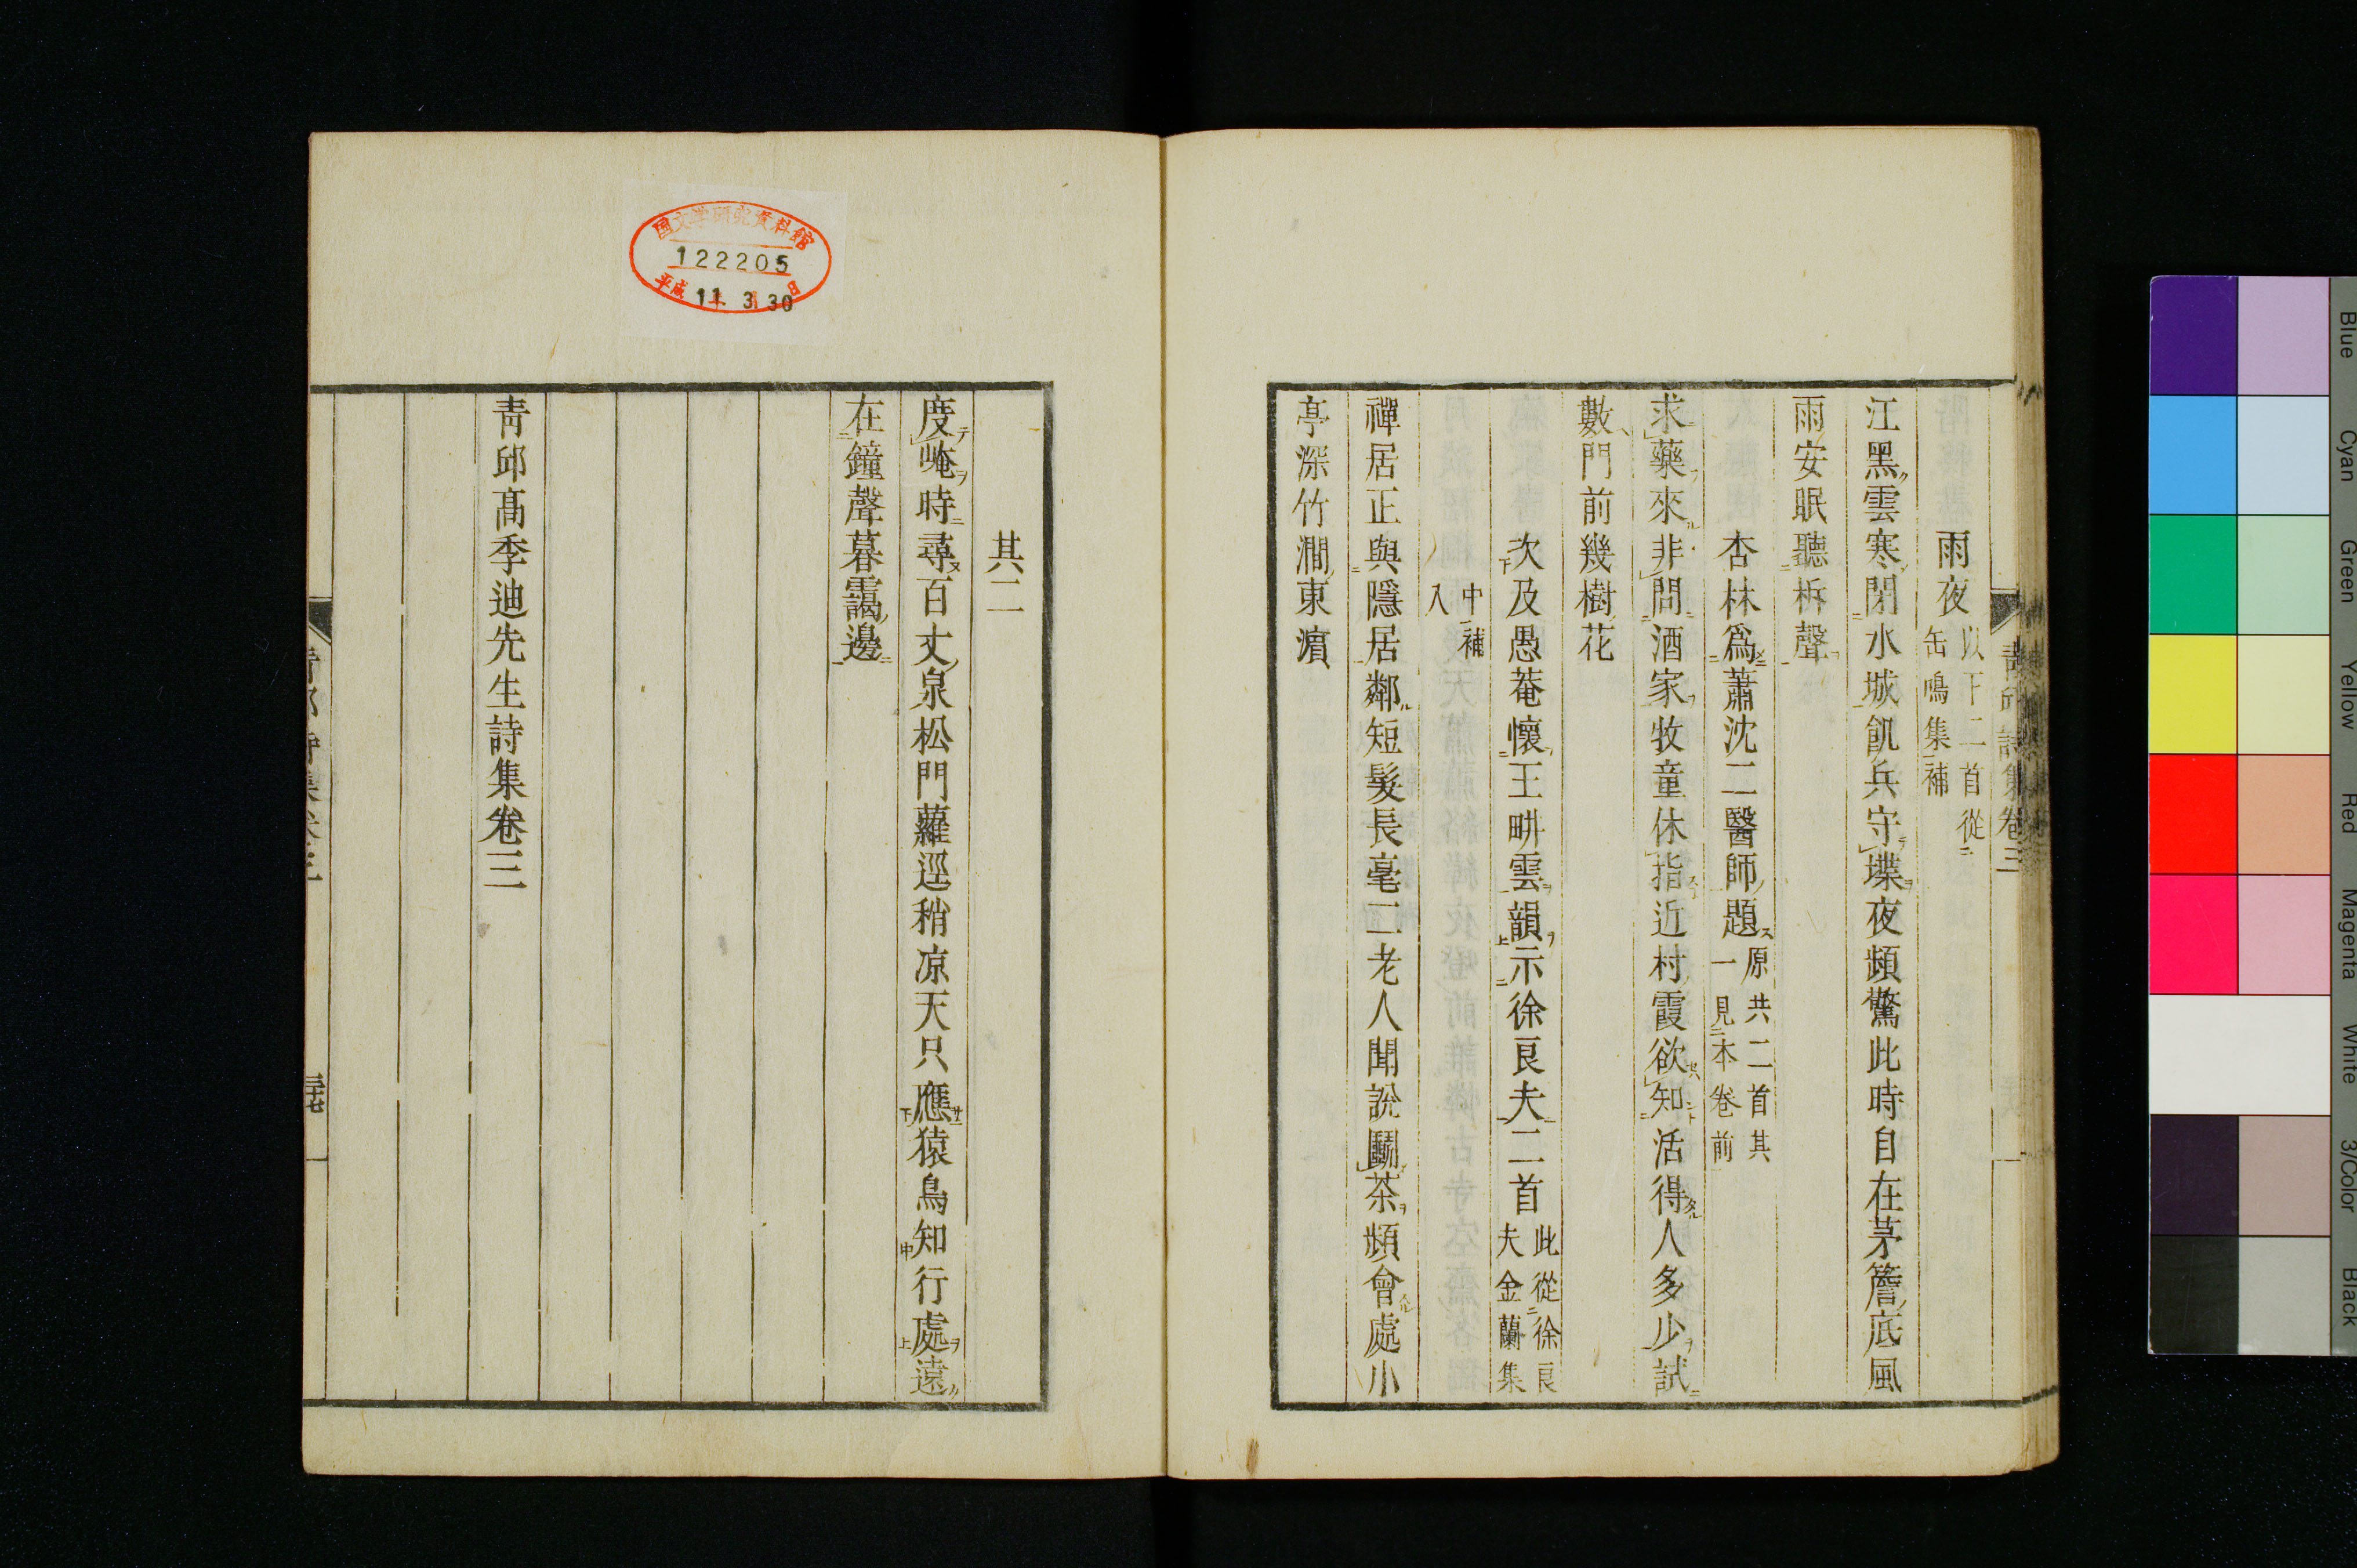 雨夜 以下二首從缶鳴集補
江黑雲寒閉水城飢兵守堞夜頻驚此時自在茅簷底風
雨安眠聽柝聲
杏林爲蕭沈二醫師題 原共二首其一見本卷前
求藥來非問酒家牧童休指近村霞欲知活得人多少試
數門前幾樹花
次及愚菴懷王畊雲韻示徐良夫二首 此從徐良夫金蘭集
中補入
禪居正與隱居鄰短髮長毫二老人聞說鬭茶頻會處小
亭深竹澗東濵
其二
度崦時尋百丈泉松門蘿逕稍凉天只應猿鳥知行處遠
在鐘聲暮靄邊
青邱髙季迪先生詩集卷三
国文学研究資料館
122205
平成11年3月30日
青邱詩集卷三
Blue
Cyan
Green
Yellow
Red
Magenta
White
3/Color
Black